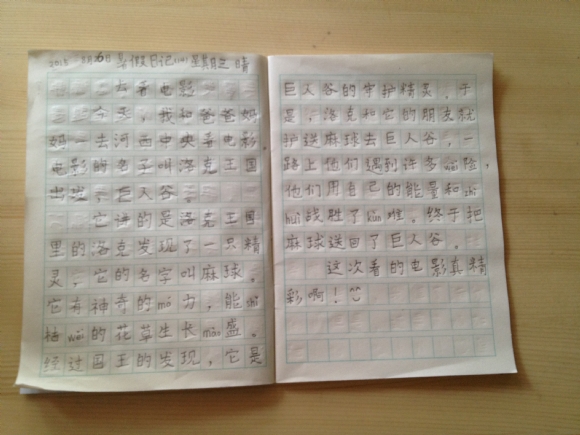 2015 8月6日 暑假日记 星期 晴
去看电影
今天，我和爸爸妈
妈一去河西中央看电影
电影的名子叫洛克王国
出 ，巨人谷。
它讲的是洛克王国
里的洛克发现了一只精
灵，它的名字叫麻球，
它有神奇的mó力，能shǐ
植wù的花草生长mào盛。
经过国王的发现，它是
巨人谷的守护精灵，于
是，洛克和它的朋友就
护送麻球去巨人谷，一
路上他们遇到许多wēi险，
他们用自己的能量和zhì
huì战胜了kùn难，终于把
麻球送回了巨人谷。
这次看的电影真精
彩啊！